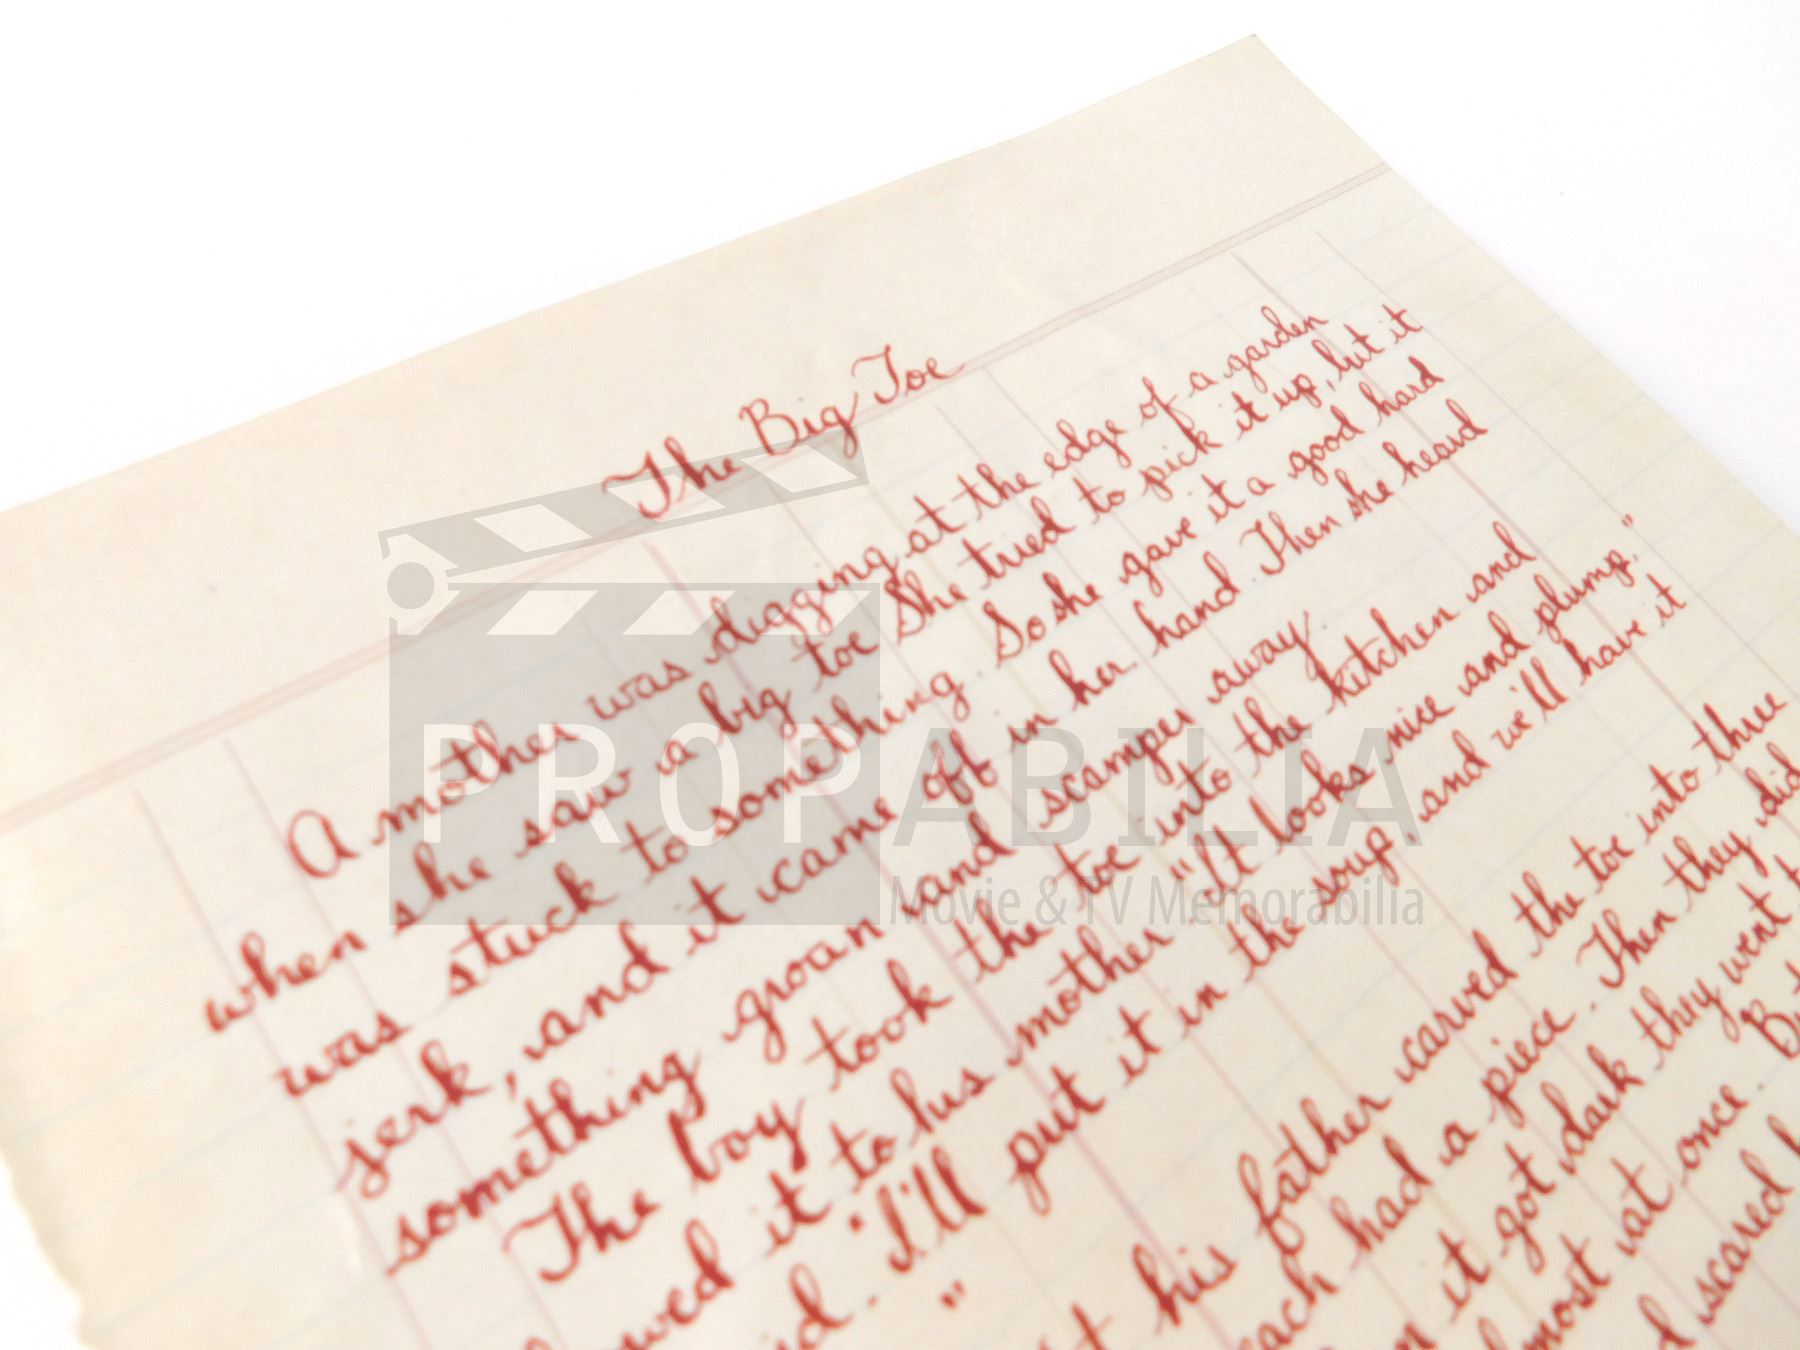 The Big Toe
A mother was digging at the edge of a garden
when she saw a big toe She tried to pick it up, but it
was stuck to something. So she gave it a good hard
jerk, and it came off in her hand Then she heard
something groan and scamper away
The boy took the toe into the kitchen and
it to his mother "It looks nice and plump,"
"I'll put it in the soup, and we'll have it
"
his father carved the toe into three
had a piece. Then they did
it got dark they went
at once.
scared
PROPABILIA
Movie & TV Memorabilia